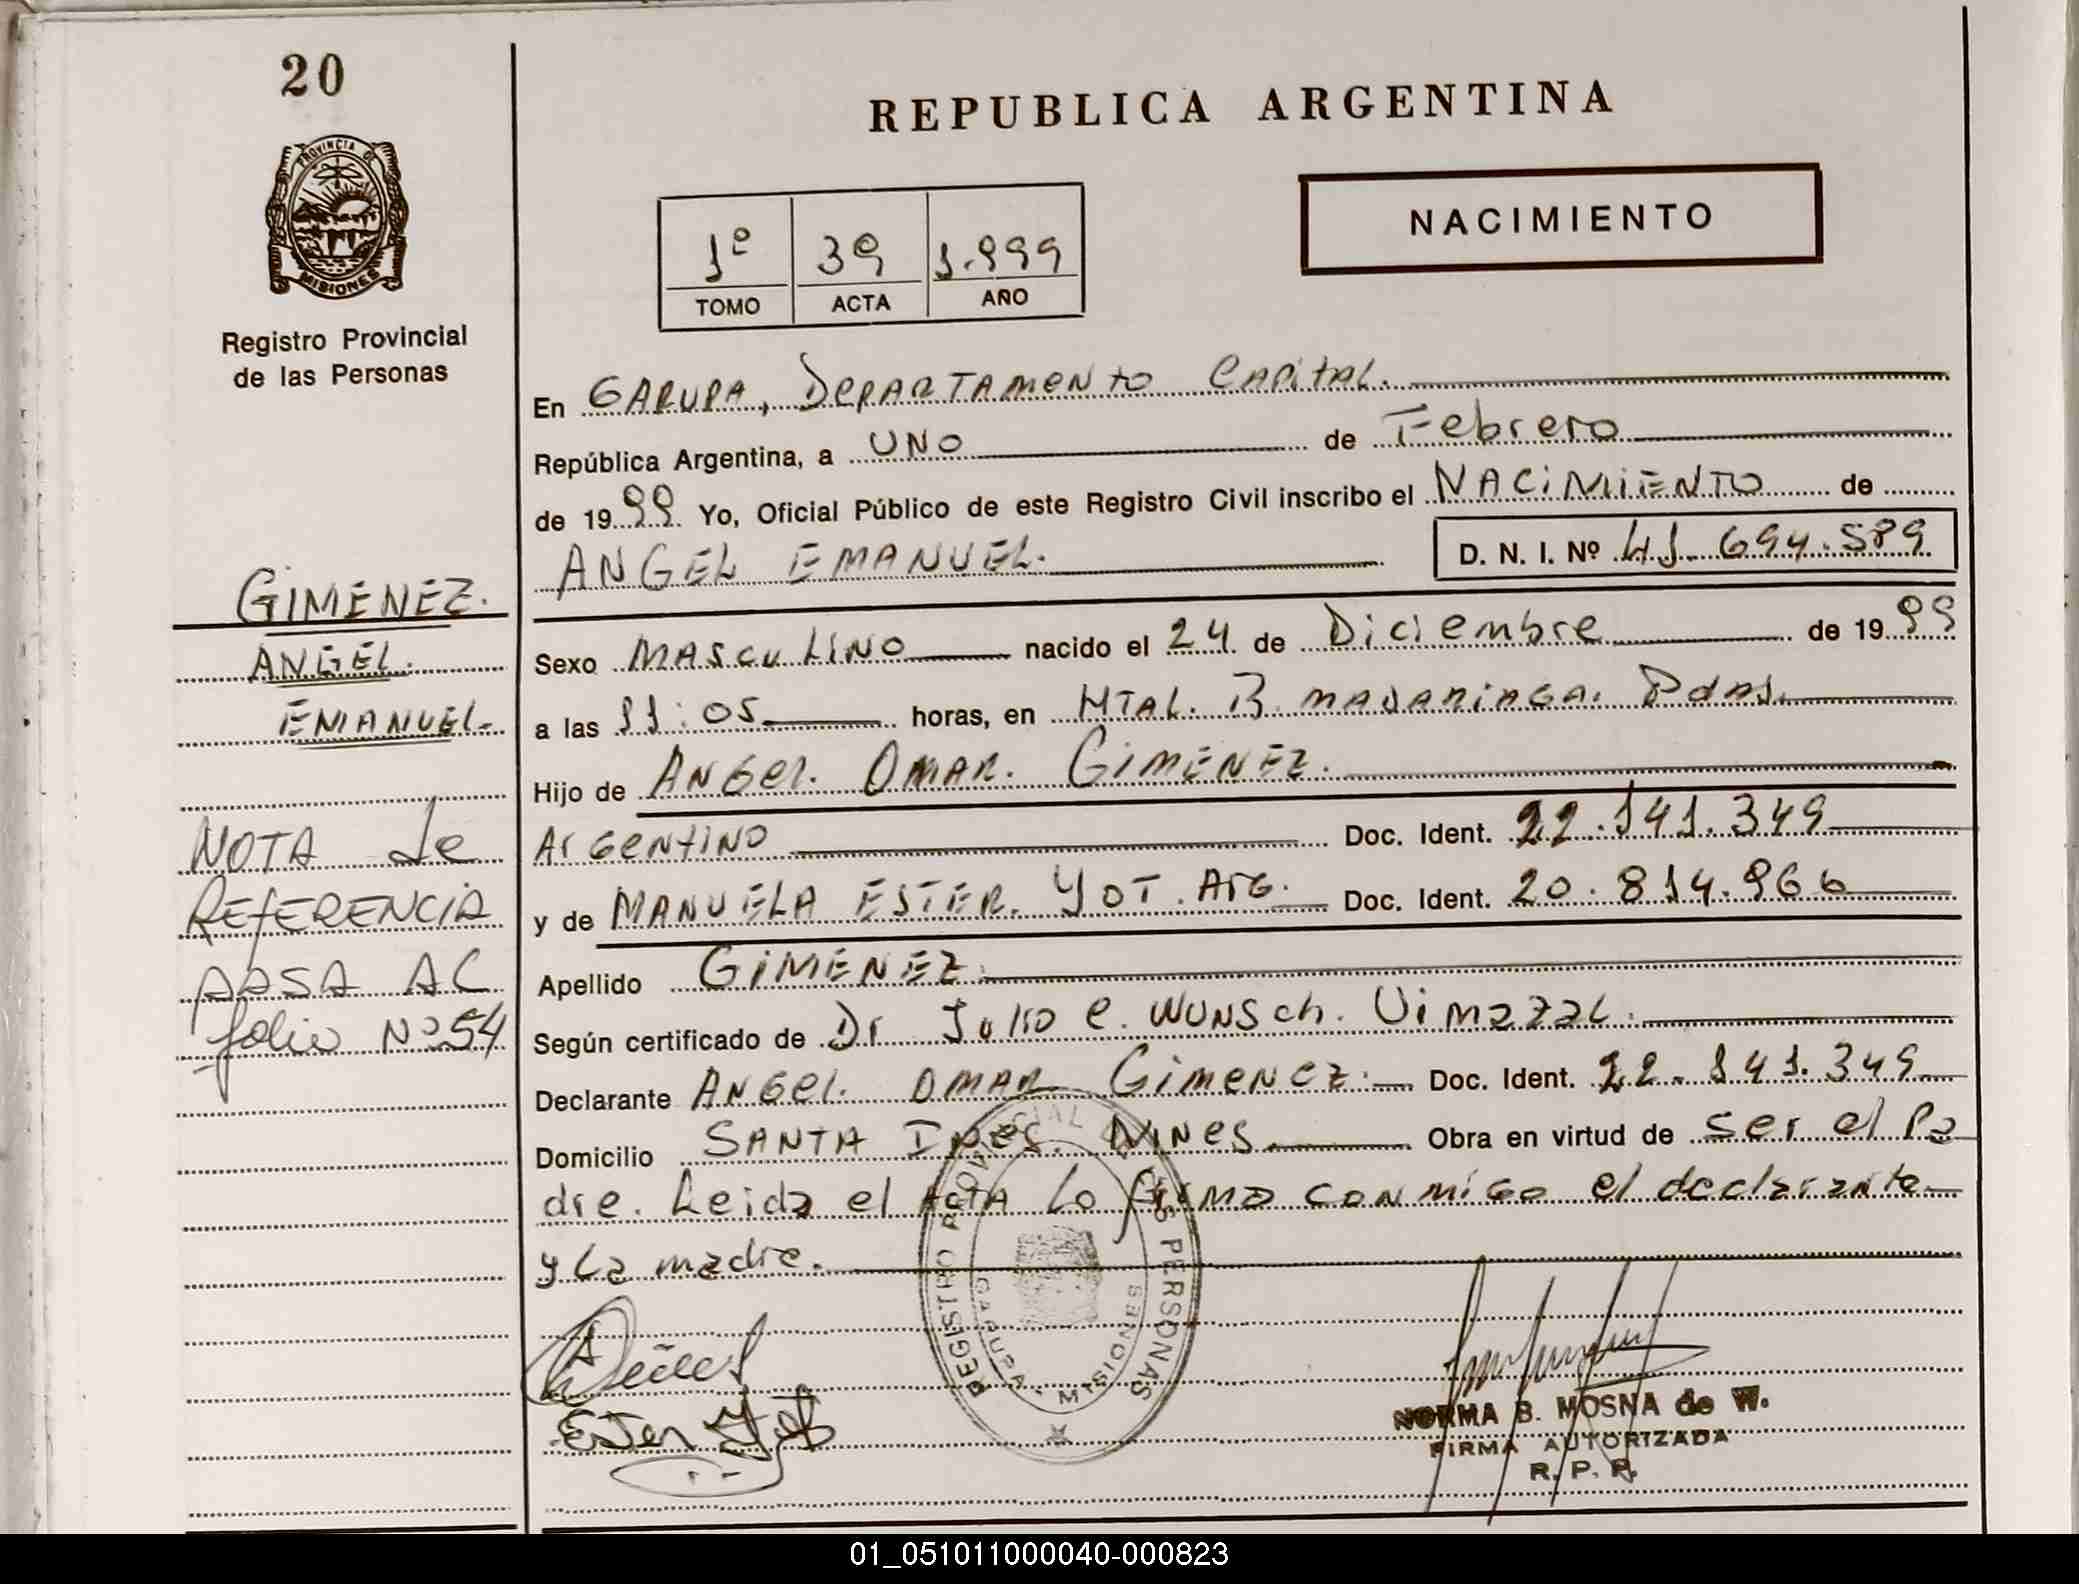 20
REPUBLICA ARGENTINA
PROVINCIA DE
MISIONES
Registro Provincial
de las Personas
1º 39 1.999
TOMO ACTA AÑO
NACIMIENTO
En GARUPA, DEPARTAMENTO CAPITAL.
República Argentina, a UNO de Febrero
de 1999 Yo, Oficial Público de este Registro Civil inscribo el NACIMIENTO de
ANGEL EMANUEL.
D. N. I. Nº 41.694.589
GIMENEZ.
ANGEL.
EMANUEL.
Sexo MASCULINO nacido el 24 de Diciembre de 1999
a las 11:05 horas, en HTAL. R. MADARIAGA. Pdas.
Hijo de ANGel. OMAR. GIMENEZ.
ArGeNtINO Doc. Ident. 22.141.349
y de MANUELA ESTER. YOT. ArG. Doc. Ident. 20.814.966
Apellido GIMENEZ.
Según certificado de Dr Julio C. WUNSch. Vimazal.
Declarante ANGel. OMAR GIMENEZ. Doc. Ident. 22.141.349
Domicilio SANTA INes. NINes. Obra en virtud de ser el Pa
dre. Leida el ACTA Lo firma conmigo el declarante
y La madre.
NOTA de
REfERENCIA
PASA AL
folio Nº 54
REGISTRO PROVINCIAL LAS PERSONAS
GARUPA - MISIONES
Ester Yot
NORMA B. MOSNA de W.
FIRMA AUTORIZADA
R. P. P.
01_051011000040-000823